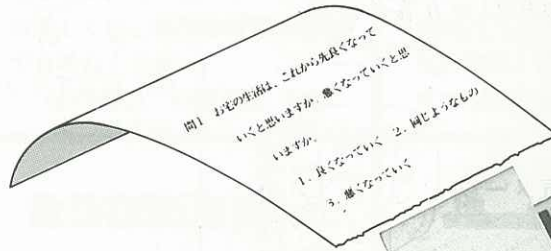 問1 お宅の生活は、これから先良くなって
いくと思いますか、悪くなっていくと思
いますか。
1. 良くなっていく 2. 同じようなもの
3. 悪くなっていく